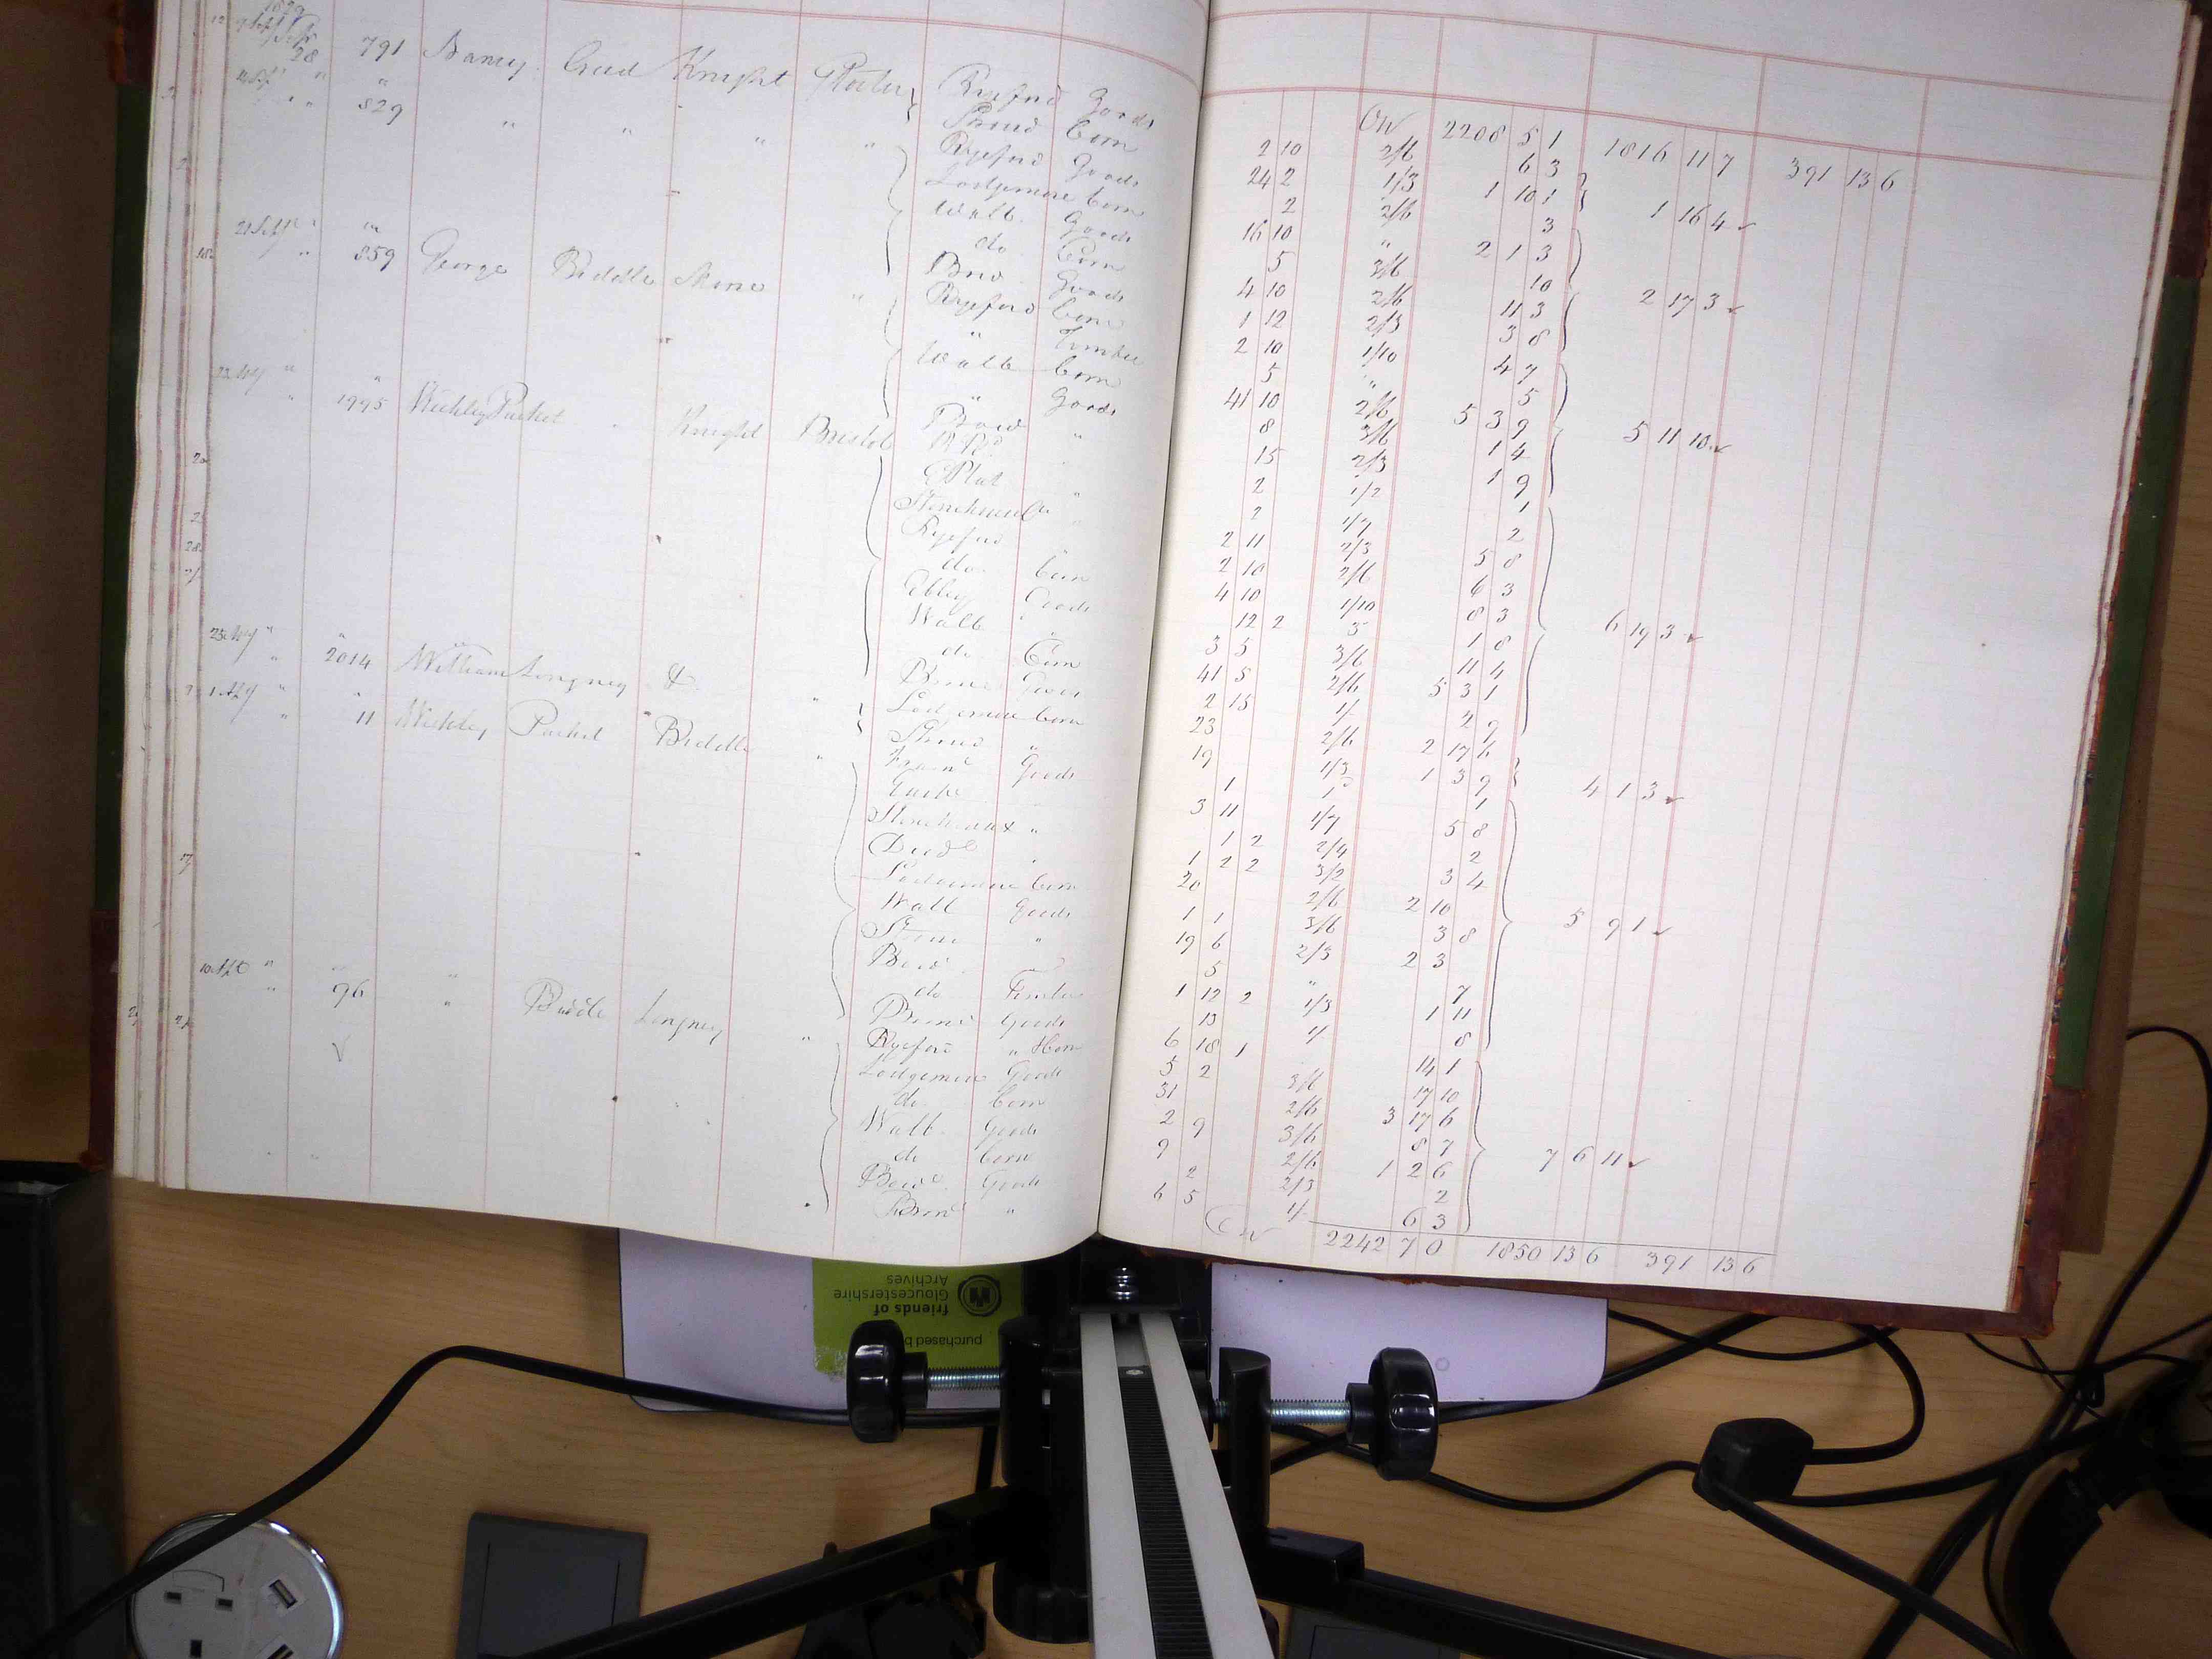 1829
28 " 791 Nancy Gred Knight Glocter Ryeford Goods
" " 829 " " " " Stroud Corn
Ryeford Goods
Lodgemore Corn
Wallb. Goods
do Corn
21 Sept " "
" 859 George Biddle Skene " Brid Goods
Ryeford Corn
" Timber
Wallb Corn
" Goods
" 1995 Weekly Packet Knight Bristol Bowd "
EPlat "
Stonehouse "
Ryeford
do Corn
Ebley Goods
Wallb "
do Corn
" 2014 William Longney & " Brimd Goods
Lodgemore Corn
" 11 Weekly Packet Biddle " Stroud "
Framd Goods
Stonehouse "
Dudb "
Lodgemore Corn
Wallb Goods
Stroud "
Bowd
do Timber
" 96 " Biddle Longney " Brimd Goods
Ryeford "
Lodgemore Goods
do Corn
Wallb Goods
do Corn
Bowd Goods
Brimd "
2208 5 1 1816 11 7 391 13 6
2 10 2/6 6 3
24 2 1/3 1 10 1 1 16 4
2 2/6 3
16 10 " 2 1 3
5 3/6 10
4 10 2/6 11 3 2 17 3
1 12 2/3 3 8
2 10 1/10 4 7
5 " 5
41 10 2/6 5 3 9 5 11 10
8 3/6 1 4
15 2/3 1 9
2 1/2 1
2 1/7 2
2 11 2/3 5 8
2 10 2/6 6 3
4 10 1/10 8 3
12 2 3 1 8 6 19 3
3 5 3/6 11 4
41 5 2/6 5 3 1
2 15 1/- 2 9
23 2/6 2 17 6
19 1/3 1 3 9 4 1 3
1 1 1
3 11 1/7 5 8
1 2 2/4 2
1 2 2 3/2 3 4
20 2/6 2 10 5 9 1
1 1 3/6 3 8
19 6 2/3 2 3
5 " 7
1 12 2 1/3 1 11
13 1/ 8
6 18 1 14 1
5 2 3/6 17 10
31 2/6 3 17 6
2 9 3/6 8 7
9 2/6 1 2 6 7 6 11
2 2/3 2
6 5 1/- 6 3
2242 7 0 1850 13 6 391 13 6
purchased b
friends of
Gloucestershire
Archives